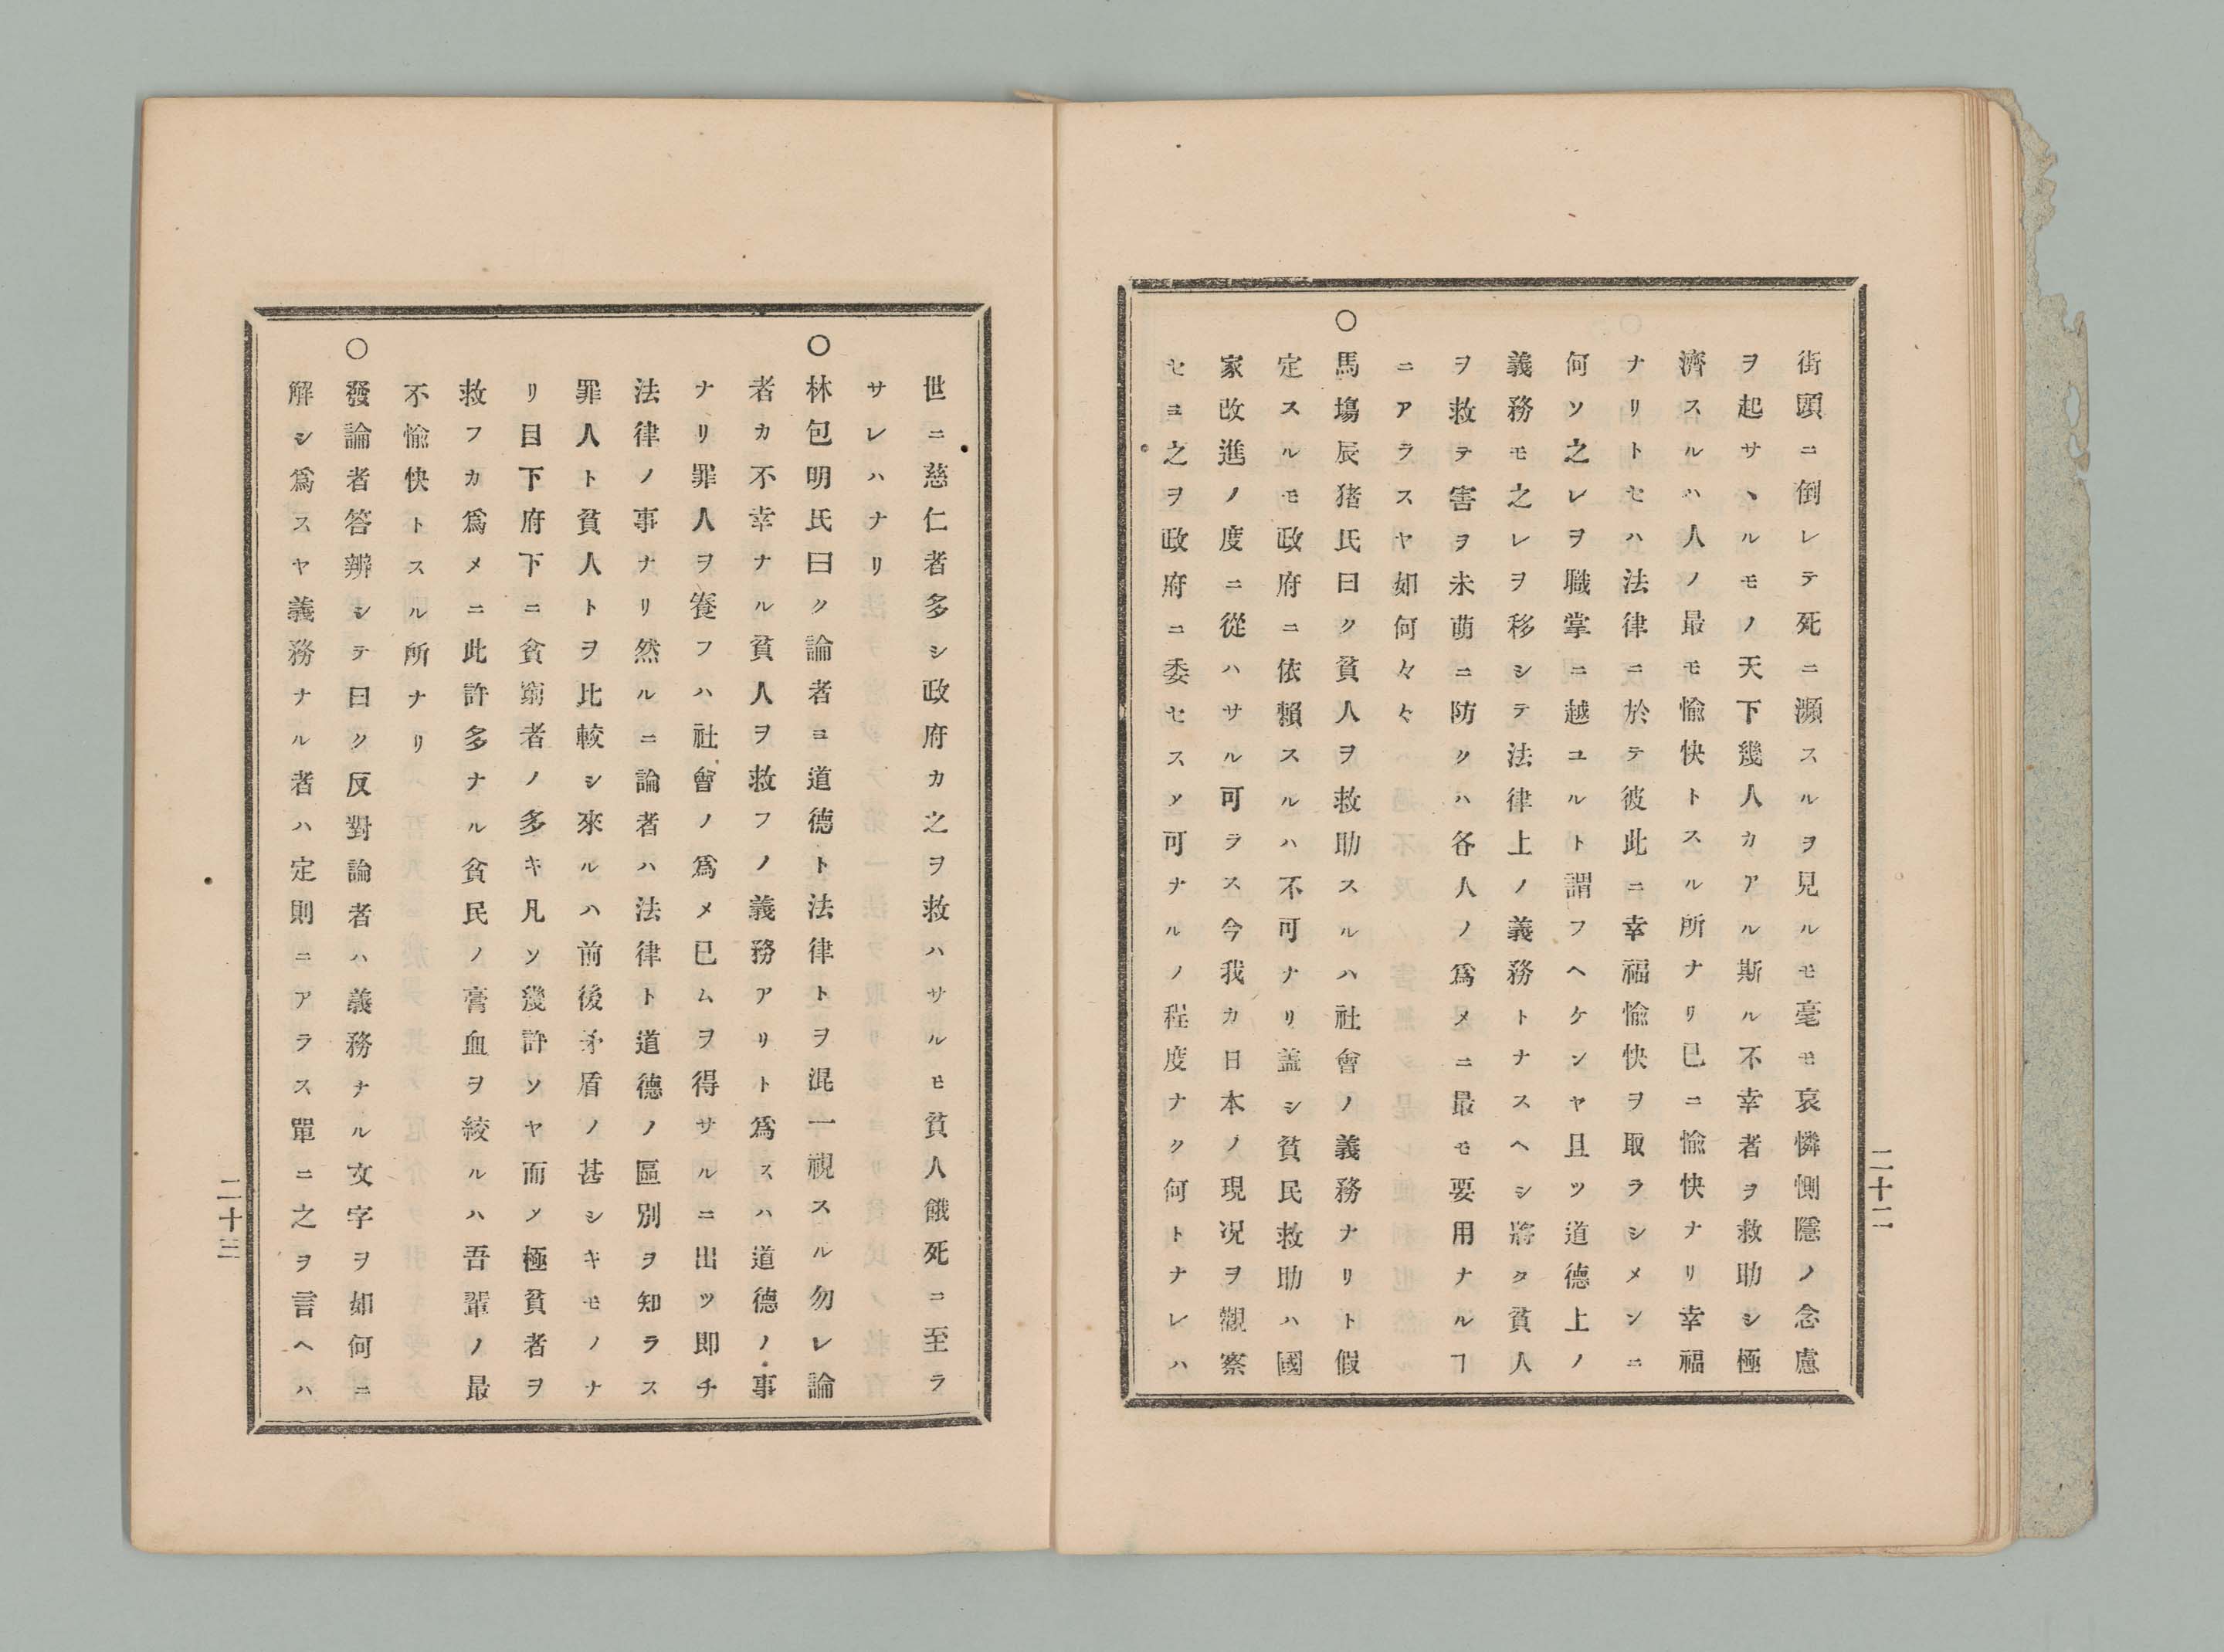 街頭ニ倒レテ死ニ瀕スルヲ見ルモ毫モ哀憐惻隱ノ念慮
ヲ起サヽルモノ天下幾人カアル斯ル不幸者ヲ救助シ極
濟スルハ人ノ最モ愉快トスル所ナリ已ニ愉快ナリ幸福
ナリトセハ法律ニ於テ彼此ニ幸福愉快ヲ取ラシメンニ
何ソ之レヲ職掌ニ越ユルト謂フヘケンヤ且ツ道德上ノ
義務モ之レヲ移シテ法律上ノ義務トナスヘシ將タ貧人
ヲ救テ害ヲ未萠ニ防クハ各人ノ爲メニ最モ要用ナルヿ
ニアラスヤ如何々々
○馬塲辰猪氏曰ク貧人ヲ救助スルハ社會ノ義務ナリト假
定スルモ政府ニ依賴スルハ不可ナリ蓋シ貧民救助ハ國
家改進ノ度ニ從ハサル可ラス今我カ日本ノ現况ヲ觀察
セヨ之ヲ政府ニ委セスソ可ナルノ程度ナク何トナレハ
二十二
世ニ慈仁者多シ政府カ之ヲ救ハサルモ貧人餓死ニ至ラ
サレハナリ
○林包明氏曰ク論者ヨ道德ト法律トヲ混一視スル勿レ論
者カ不幸ナル貧人ヲ救フノ義務アリト爲スハ道德ノ事
ナリ罪人ヲ養フハ社會ノ爲メ已ムヲ得サルニ出ツ即チ
法律ノ事ナリ然ルニ論者ハ法律ト道德ノ區別ヲ知ラス
罪人ト貧人トヲ比較シ來ルハ前後矛盾ノ甚シキモノナ
リ目下府下ニ貧窮者ノ多キ凡ソ幾許ソヤ而メ極貧者ヲ
救フカ爲メニ此許多ナル貧民ノ膏血ヲ絞ルハ吾輩ノ最
不愉快トスル所ナリ
○發論者答辨シテ曰ク反對論者ハ義務ナル文字ヲ如何ニ
解シ爲スヤ義務ナル者ハ定則ニアラス單ニ之ヲ言ヘハ
二十三